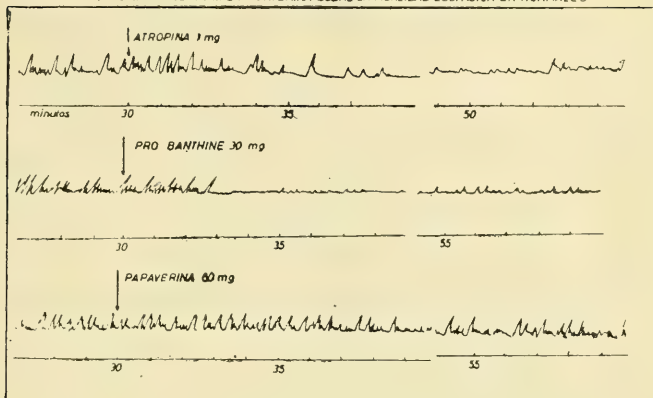 ATROPINA 1 mg
minutos 30 35 50
PRO BANTHINE 30 mg
30 35 55
PAPAVERINA 60 mg
30 35 55